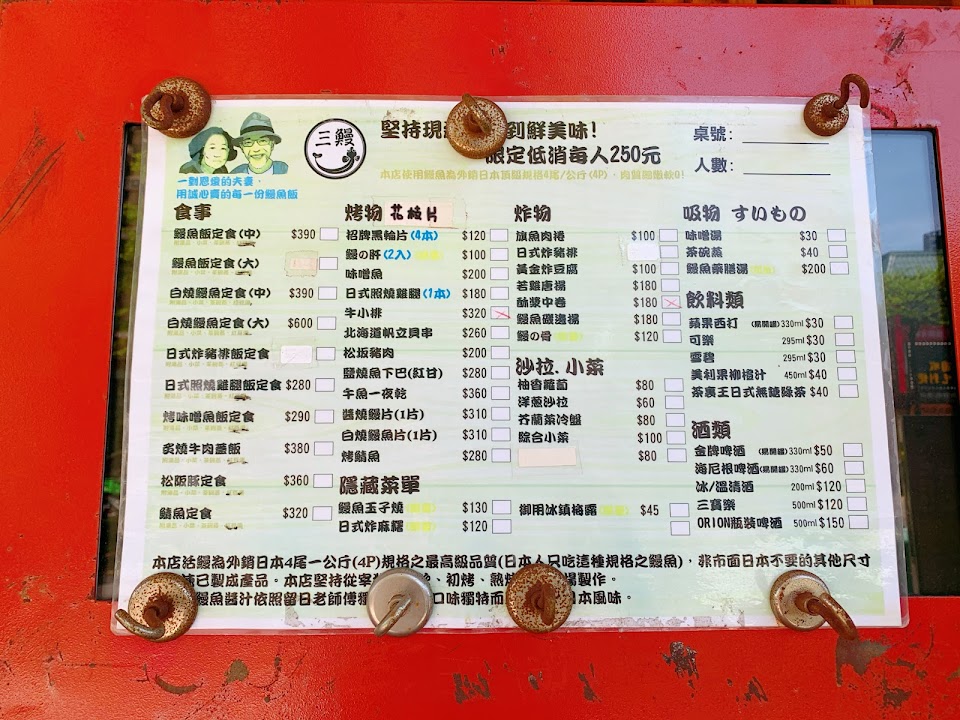 三鰻
堅持現 到鮮美味!
限定低消每人250元
本店使用鰻魚為外銷日本頂級規格4尾/公斤(4P)
桌號:
人數:
一對恩愛的夫妻,
用誠心賣的每一份鰻魚飯
食事
鰻魚飯定食(中) $390
鰻魚飯定食(大)
白燒鰻魚定食(中) $390
白燒鰻魚定食(大) $600
日式炸豬排飯定食
日式照燒雞腿飯定食 $280
烤味噌魚飯定食 $290
炙燒牛肉蓋飯 $380
松阪豚定食 $360
鯖魚定食 $320
烤物 花枝片
招牌黑輪片(4本) $120
鰻の肝(2入) $100
味噌魚 $200
日式照燒雞腿(1本) $180
牛小排 $320
北海道帆立貝串 $260
松坂豬肉 $200
鹽燒魚下巴(紅甘) $280
午魚一夜乾 $360
醬燒鰻片(1片) $310
白燒鰻魚片(1片) $310
烤鯖魚 $280
隱藏菜單
鰻魚玉子燒 $130
日式炸麻糬 $120
御用冰鎮梅露 $45
炸物
旗魚肉捲 $100
日式炸豬排
黃金炸豆腐 $100
若雞唐揚 $180
酥漿中卷 $180
鰻魚磯邊揚 $180
鰻の骨 $120
沙拉.小菜
柚香蘿蔔 $80
洋蔥沙拉 $60
芥蘭菜冷盤 $80
綜合小菜 $100
$80
吸物 すいもの
味噌湯 $30
茶碗蒸 $40
鰻魚藥膳湯 $200
飲料類
蘋果西打 (易開罐) 330ml $30
可樂 295ml $30
雪碧 295ml $30
美利果柳橙汁 450ml $40
茶裏王日式無糖綠茶 $40
酒類
金牌啤酒 (易開罐) 330ml $50
海尼根啤酒 (易開罐) 330ml $60
冰/溫清酒 200ml $120
三寶樂 500ml $120
ORION瓶裝啤酒 500ml $150
本店活鰻為外銷日本4尾一公斤(4P)規格之最高級品質(日本人只吃這種規格之鰻魚),非市面日本不要的其他尺寸
已製成產品。本店堅持從宰 、初烤、熟 製作。
鰻魚醬汁依照留日老師傅獨 口味獨特而 日本風味。